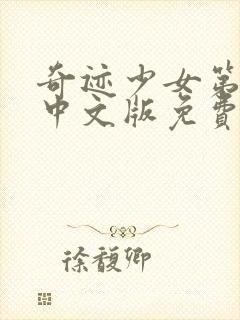 奇迹少女第
中文版免費
徐馥卿